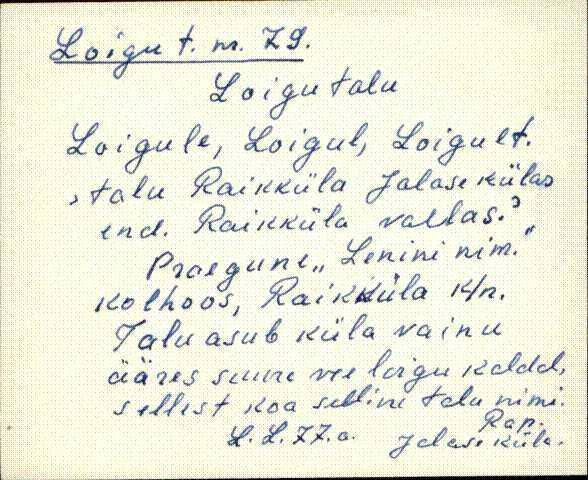 Loigu t. nr. 79.
Loigu talu
Loigule, Loigul, Loigult.
, talu Raikküla Jalase külas
end. Raikküla vallas.?
Praegune „Lenini nim."
kolhoos, Raikküla k/n.
Talu asub küla vainu
ääres suure vee loigu kaldal,
sellest koa selline talu nimi.
Rap.
L. L. 77. a. Jalase küla.